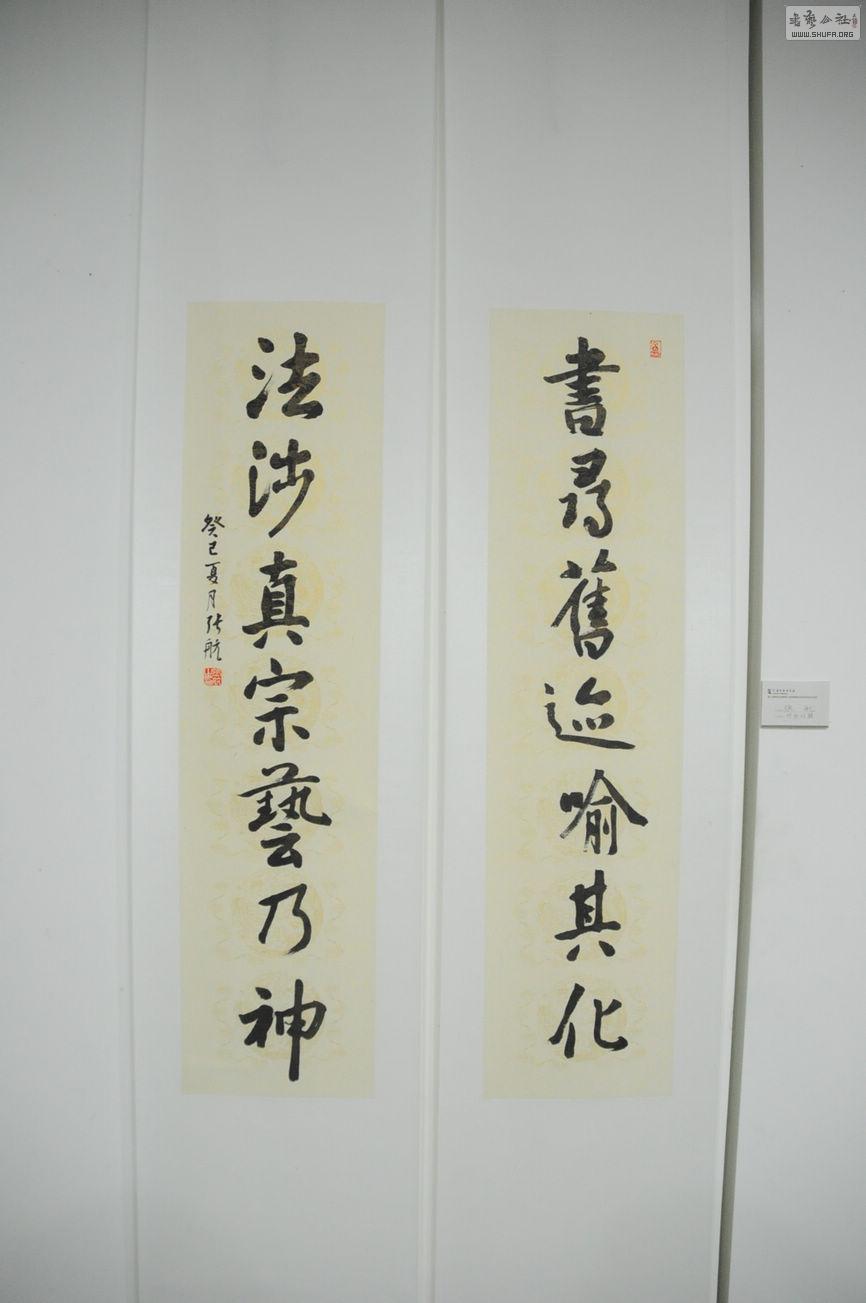 書尋舊迹喻其化
法涉真宗藝乃神
癸巳夏月張航
書藝公社
WWW.SHUFA.ORG